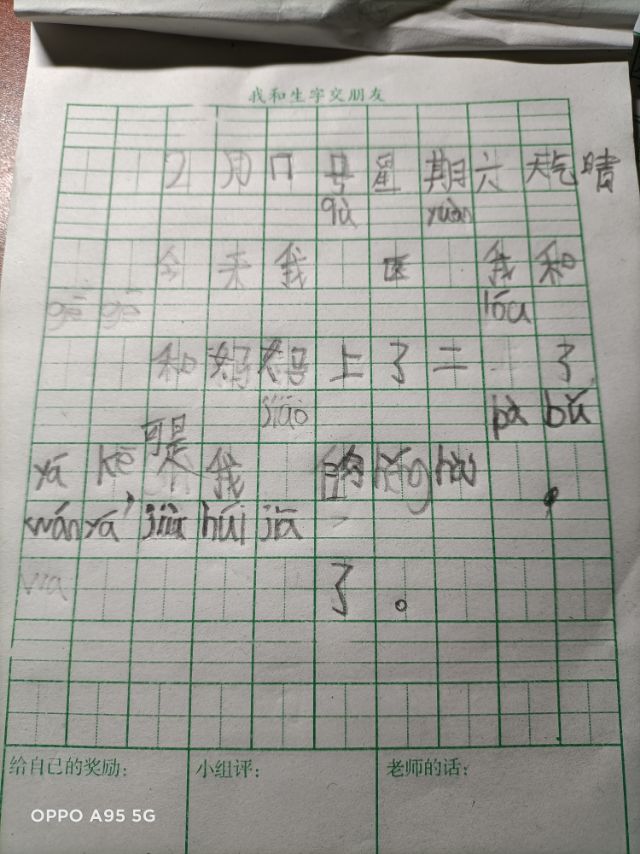 我和生字交朋友
2月 号星期六 天气晴
qù yuàn
今天我 医 我和
gē gē lóu
和妈妈上了二 了
jiāo pà bú
可是
yá kē 我 的 hěn
wán yá jiù húi jiā
了。
给自己的奖励： 小组评： 老师的话：
OPPO A95 5G